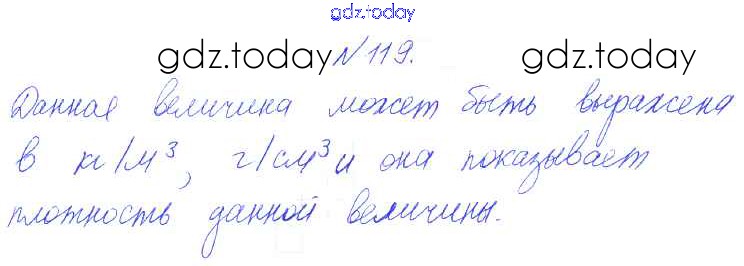 gdz.today
gdz.today №119. gdz.today
Данная величина может быть выражена
в кг/м³, г/см³ и она показывает
плотность данной величины.